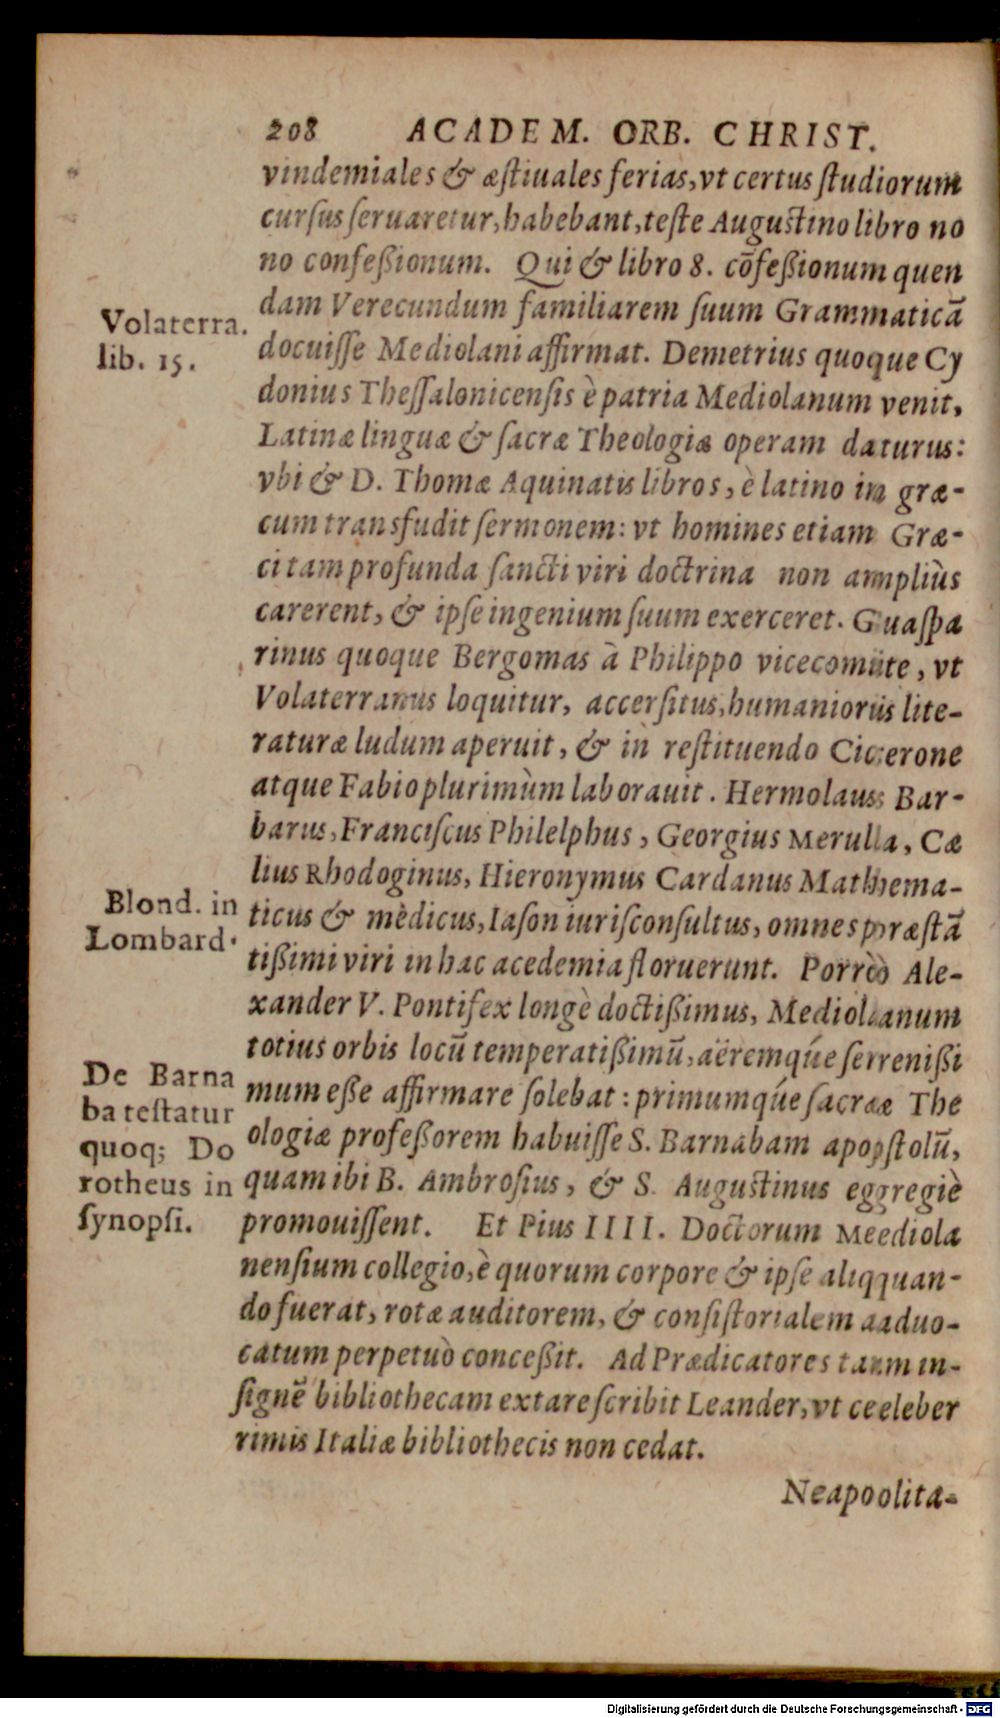 208 ACADEM. ORB. CHRIST.
vindemiales & æſtiuales ferias, vt certus ſtudiorum
curſus ſeruaretur, habebant, teſte Auguſtino libro no
no confeßionum. Qui & libro 8. cõfeßionum quen
dam Verecundum familiarem ſuum Grammaticã
Volaterra.
lib. 15.
docuiſſe Mediolani affirmat. Demetrius quoque Cy
donius Theſſalonicenſis è patria Mediolanum venit,
Latinæ linguæ & ſacræ Theologiæ operam daturus:
vbi & D. Thomæ Aquinatis libros, è latino in græ-
cum transfudit ſermonem: vt homines etiam Græ-
ci tam profunda ſancti viri doctrina non ampliùs
carerent, & ipſe ingenium ſuum exerceret. Guaſpa
rinus quoque Bergomas à Philippo vicecomite, vt
Volaterranus loquitur, accerſitus, humanioris lite-
raturæ ludum aperuit, & in reſtituendo Cicerone
atque Fabio plurimùm laborauit. Hermolaus Bar-
barus, Franciſcus Philelphus, Georgius Merulla, Cæ
lius Rhodoginus, Hieronymus Cardanus Mathema-
Blond. in
Lombard.
ticus & mèdicus, Iaſon iuriſconſultus, omnes præſtã
tißimi viri in hac acedemia floruerunt. Porrò Ale-
xander V. Pontifex longè doctißimus, Mediolanum
totius orbis locũ temperatißimũ, aëremqúe ſerenißi
De Barna
ba teſtatur
quoq; Do
rotheus in
ſynopſi.
mum eße affirmare ſolebat: primumqúe ſacræ The
ologiæ profeßorem habuiſſe S. Barnabam apoſtolũ,
quam ibi B. Ambroſius, & S. Auguſtinus egregiè
promouiſſent. Et Pius IIII. Doctorum Mediola
nenſium collegio, è quorum corpore & ipſe aliquan-
do fuerat, rotæ auditorem, & conſiſtorialem aduo-
catum perpetuò conceßit. Ad Prædicatores tam in-
ſignẽ bibliothecam extare ſcribit Leander, vt celeber
rimis Italiæ bibliothecis non cedat.
Neapolita-
Digitalisierung gefördert durch die Deutsche Forschungsgemeinschaft - DFG